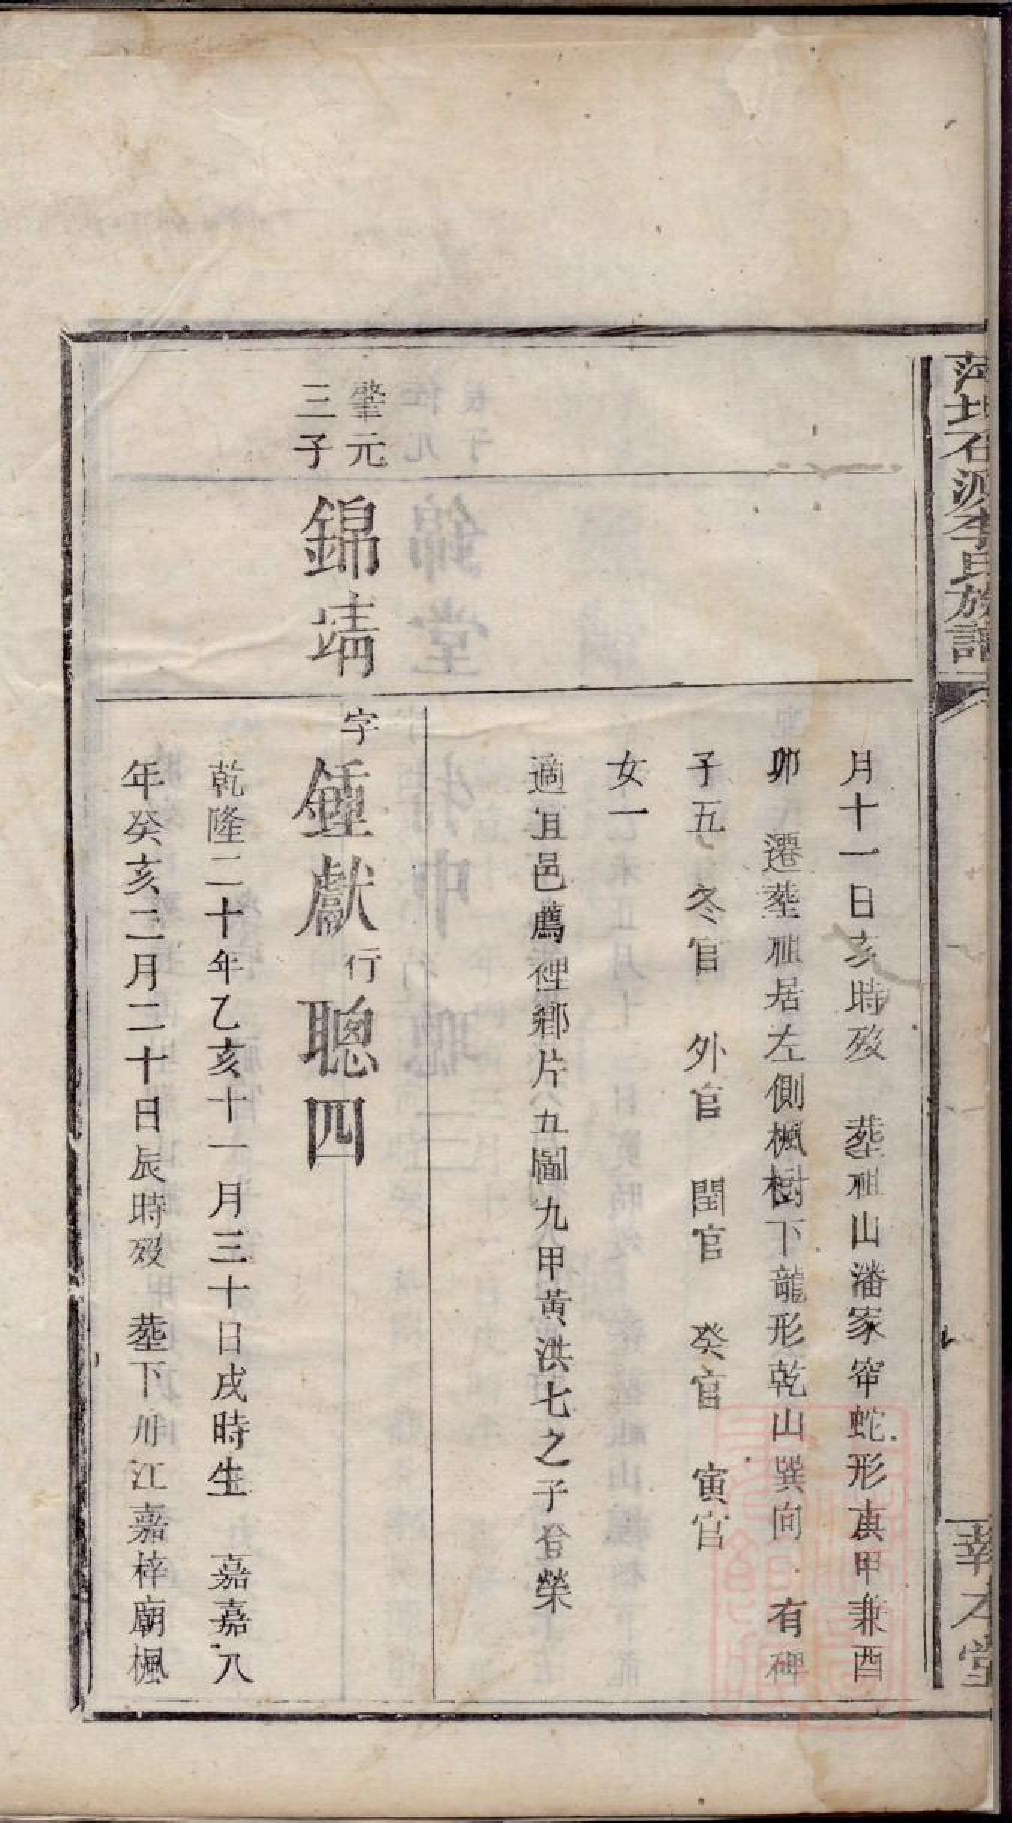 石源李氏族譜
敦本堂
月十一日亥時歿　葬祖山潘家窂蛇形庚甲兼酉
卯　遷葬祖居左側楓樹下龍形乾山巽向　有碑
子五　冬官　外官　閏官　癸官　寅官
女一
適宜邑薦裡鄉片五圖九甲黃洪七之子登榮
肇元
三子
錦靖
字鍾獻行聰四
乾隆二十年乙亥十一月三十日戌時生　嘉嘉八
年癸亥二月二十日辰時歿　葬下册江嘉梓廟楓